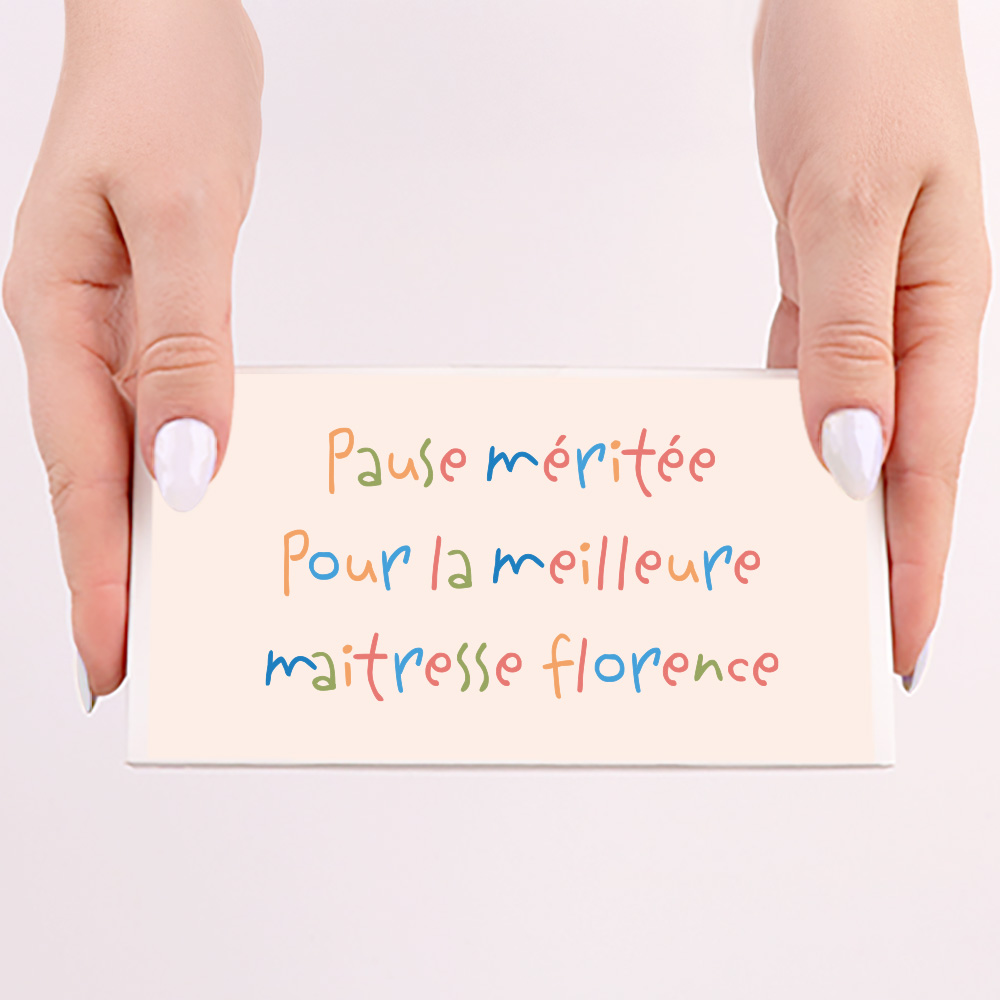 Pause méritée
Pour la meilleure
maitresse florence